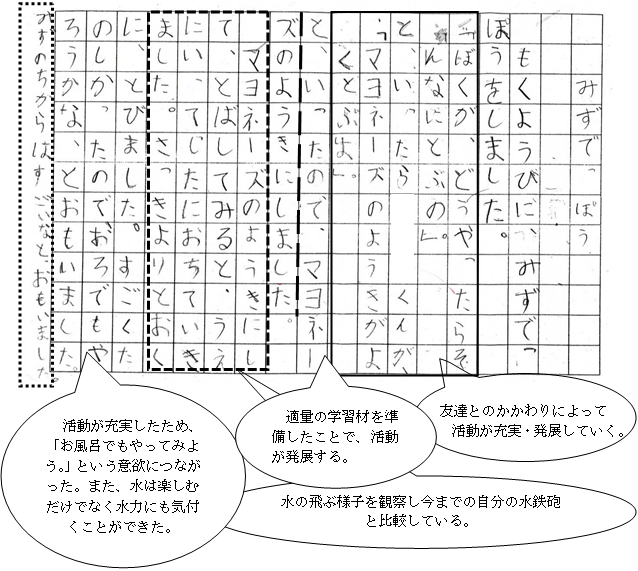 みずでっぽう
もくようびに、みずでっ
ぽうをしました。
「ぼくが、どうやったらそ
んなにとぶの」。
と、いったら　　くんが、
「マヨネーズのようきがよ
くとぶよ」。
と、いったので、マヨネー
ズのようきにしました。
マヨネーズのようきにし
て、とばしてみると、うえ
にいってしたにおちていき
ました。さっきよりとおく
に、とびました。すごくた
のしかったのでおふろでもや
ろうかな、とおもいました。
みずのちからはすごいなとおもいました。
友達とのかかわりによって
活動が充実・発展していく。
適量の学習材を準
備したことで、活動
が発展する。
水の飛ぶ様子を観察し今までの自分の水鉄砲
と比較している。
活動が充実したため、
「お風呂でもやってみよ
う。」という意欲につなが
った。また、水は楽しむ
だけでなく水力にも気付
くことができた。